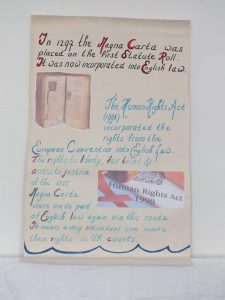 In 1297 the Magna Carta was
placed on the First Statute Roll.
It was now incorporated into English law.
The Human Rights Act
(1998)
incorporated the
rights from the
European Convention into English law.
The rights to liberty, fair trial &
access to justice
of the 1215
Magna Carta
were made part
of English law again via this route.
It means every individual can invoke
these rights in UK courts.
Human Rights Act
1998